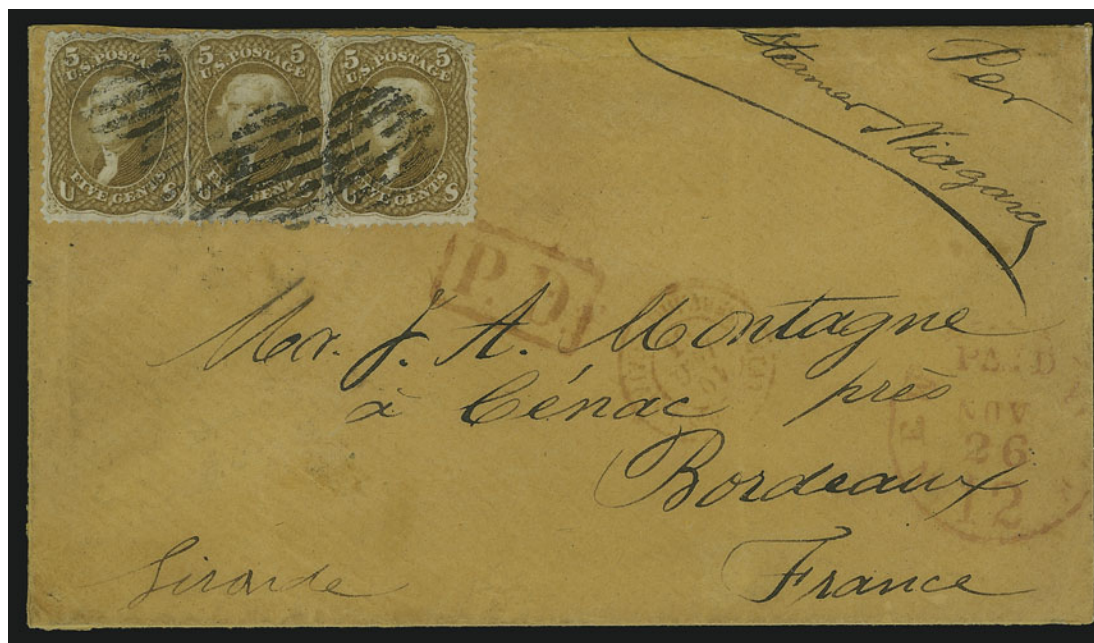 5 5
U.S. POSTAGE
FIVE CENTS
U S
5 5
U.S. POSTAGE
FIVE CENTS
U S
5 5
U.S. POSTAGE
FIVE CENTS
U S
Per
Steamer Niagara
P.D.
Mr. J. A. Montagne
à Cénac près
Bordeaux
France
Girande
PAID
NOV
26
12